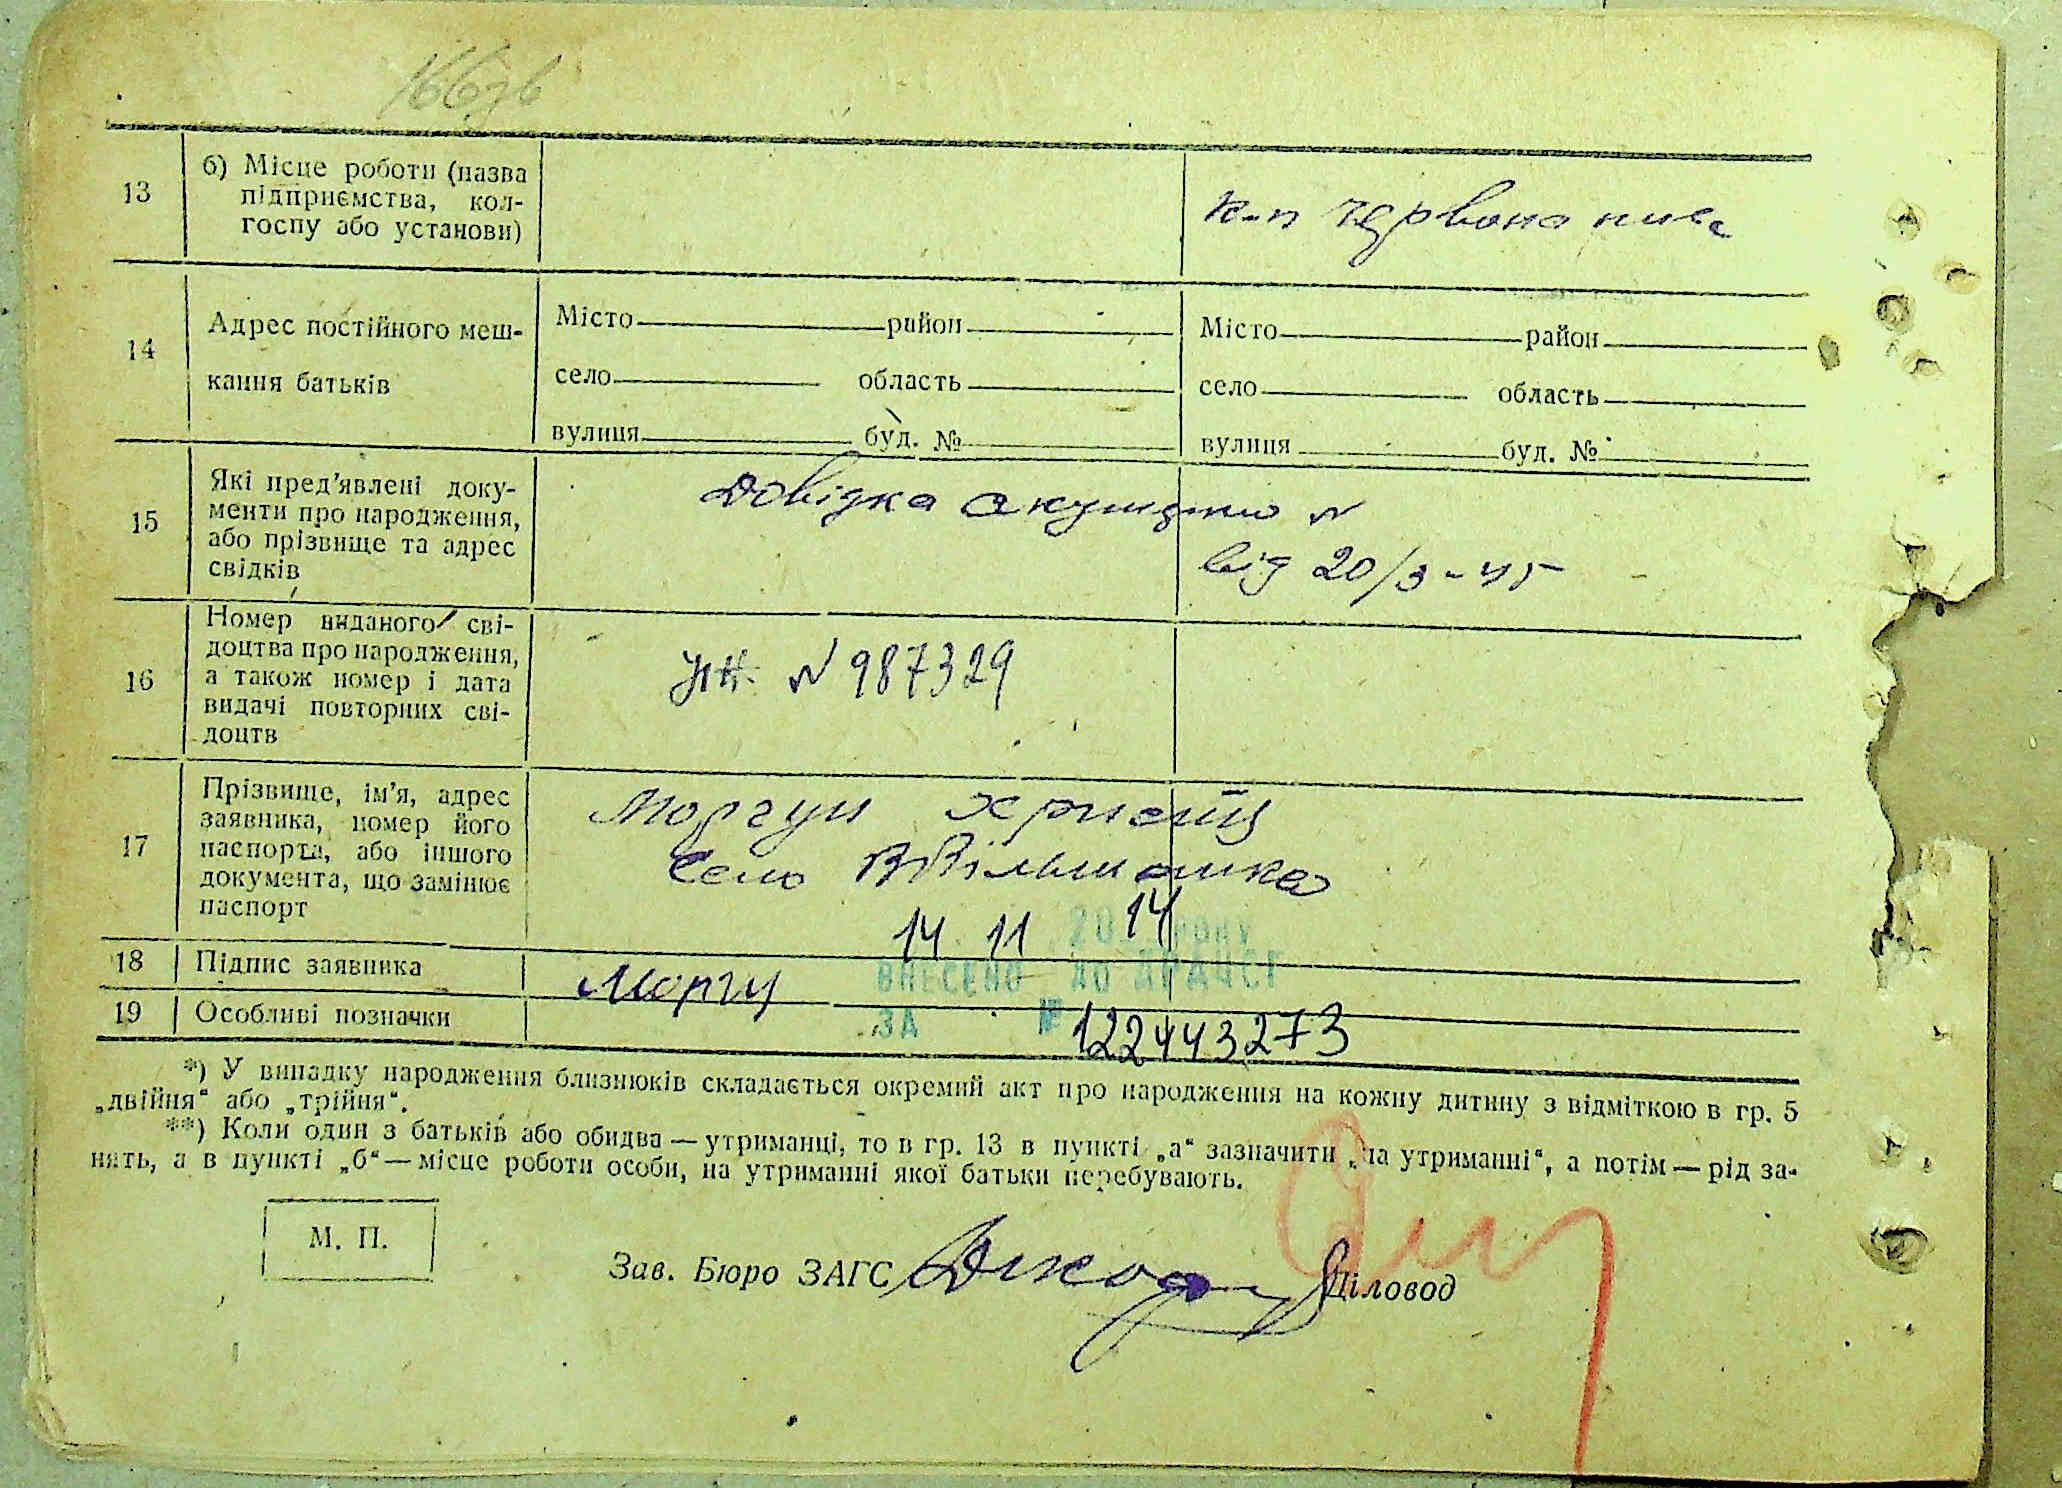 166зв
13
б) Місце роботи (назва
підприємства, кол-
госпу або установи)
к-п червона нива
14
Адрес постійного меш-
кання батьків
Місто район
село область
вулиця буд. №
Місто район
село область
вулиця буд. №
15
Які пред'явлені доку-
менти про народження,
або прізвище та адрес
свідків
Довідка акушерки №
від 20/3-45
16
Номер виданого сві-
доцтва про народження,
а також номер і дата
видачі повторних сві-
доцтв
№ 987329
17
Прізвище, ім'я, адрес
заявника, номер його
паспорта, або іншого
документа, що замінює
паспорт
Моргун
село Вільшанка
14 11 2014 року
18
Підпис заявника
Моргу
ВНЕСЕНО ДО ДРАЦСГ
19
Особливі позначки
ЗА № 122443273
*) У випадку народження близнюків складається окремий акт про народження на кожну дитину з відміткою в гр. 5
„двійня“ або „трійня“.
**) Коли один з батьків або обидва — утриманці, то в гр. 13 в пункті „а“ зазначити „на утриманні“, а потім — рід за-
нять, а в пункті „б“ — місце роботи особи, на утриманні якої батьки перебувають.
М. П.
Зав. Бюро ЗАГС
Діловод